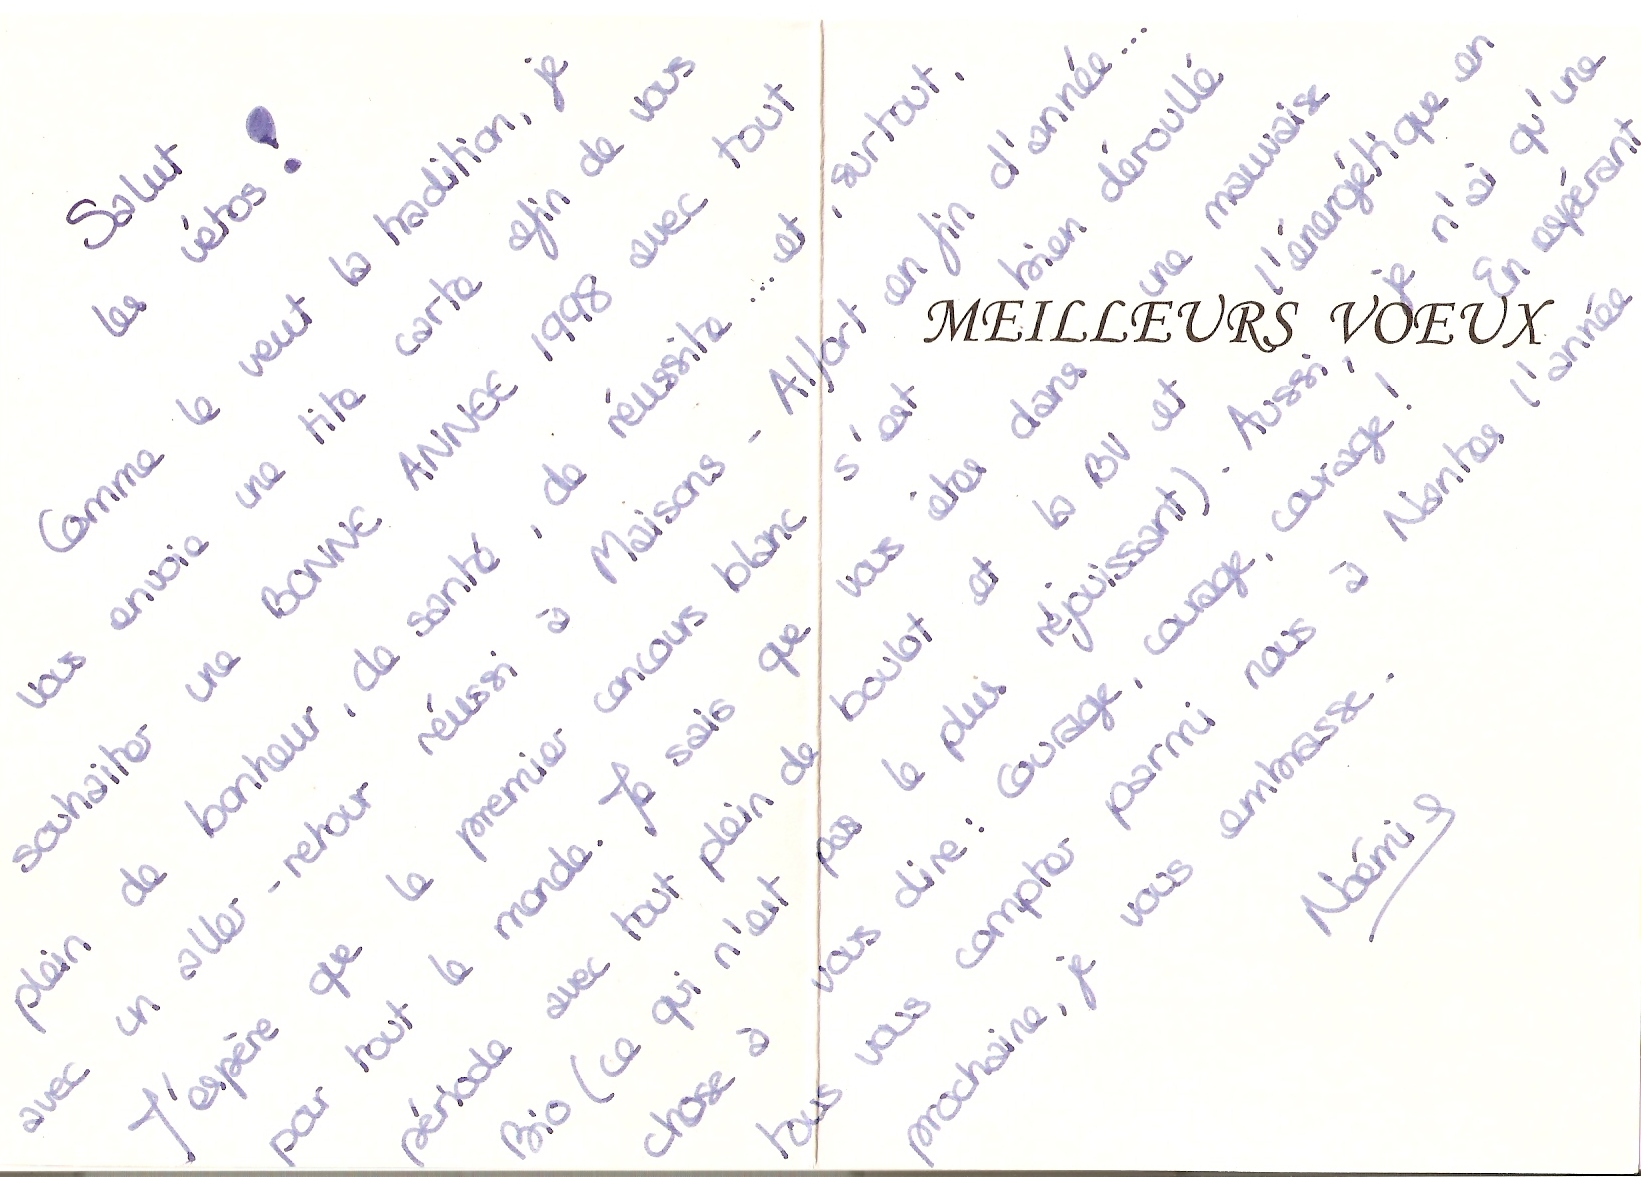 Salut
les vétos !
Comme le veut la tradition, je
vous envoie une tite carte afin de vous
souhaiter une BONNE ANNEE 1998 avec tout
plein de bonheur, de santé, de réussite ... et, surtout,
avec un aller-retour réussi à Maisons-Alfort en fin d'année...
J'espère que le premier concours blanc s'est bien déroullé
pour tout le monde. Je sais que vous êtes dans une mauvaise
période avec tout plein de boulot et la BV et l'énergétique en
Bio (ce qui n'est pas le plus réjouissant). Aussi, je n'ai qu'une
chose à vous dire : Courage, courage, courage ! En espérant
tous vous compter parmi nous à Nantes l'année
prochaine, je vous embrasse.
Noémie
MEILLEURS VOEUX